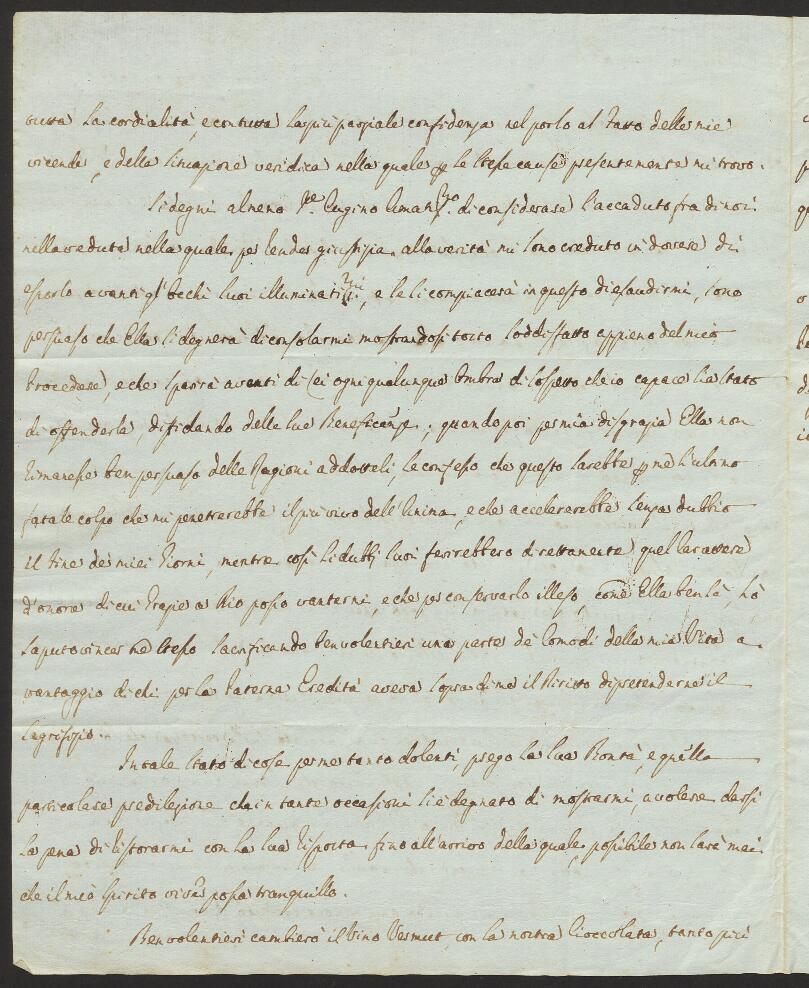 tutta la cordialità, e con tutta la più parziale confidenza nel porlo al fatto delle mie
vicende, e della situazione veridica nella quale p le stesse cause presentemente mi trovo.
Si degni almeno Cugino Amat.mo di considerare l'accaduto fra di noi
nella veduta nella quale per render giustizia alla verità mi sono creduto in dovere di
esporlo avanti gl'occhi suoi illuminatis.mi, e se si compiacerà in questo di esaudirmi, sono
persuaso che Ella si degnerà di consolarmi mostrandosi tosto soddisfatto appieno del mio
procedere, e che sparirà avanti di Lei ogni qualunque ombra di sospetto che io capace sia stato
di offenderla, diffidando delle sue Beneficenze; quando poi per mia disgrazia Ella non
rimanesse ben persuaso delle Ragioni addotteli, le confesso che questo sarebbe p me l'ultimo
fatale colpo che mi penetrerebbe il più vivo dell'Anima, e che accelererebbe senza dubbio
il fine de miei Giorni, mentre così li dubbj suoi ferirebbero direttamente quel Carattere
d'onore di cui Grazie a Dio posso vantarmi, e che per conservarlo illeso, come Ella ben sà, hò
saputo vincer me stesso sacrificando benvolentieri una parte de Comodi della mia Vita a
vantaggio di chi per la Paterna Eredità aveva sopra di me il Diritto di pretenderne il
sagrifizio.
In tale stato di cose per me tanto dolenti, prego la sua Bontà, e quella
particolare predilezione che in tante occasioni si è degnato di mostrarmi, a volere darsi
la pena di ristorarmi con la sua risposta fino all'arrivo della quale, possibile non sarà mai
che il mio spirito viver possa tranquillo.
Benvolentieri cambierò il Vino Vermut, con la nostra Cioccolata, tanto più